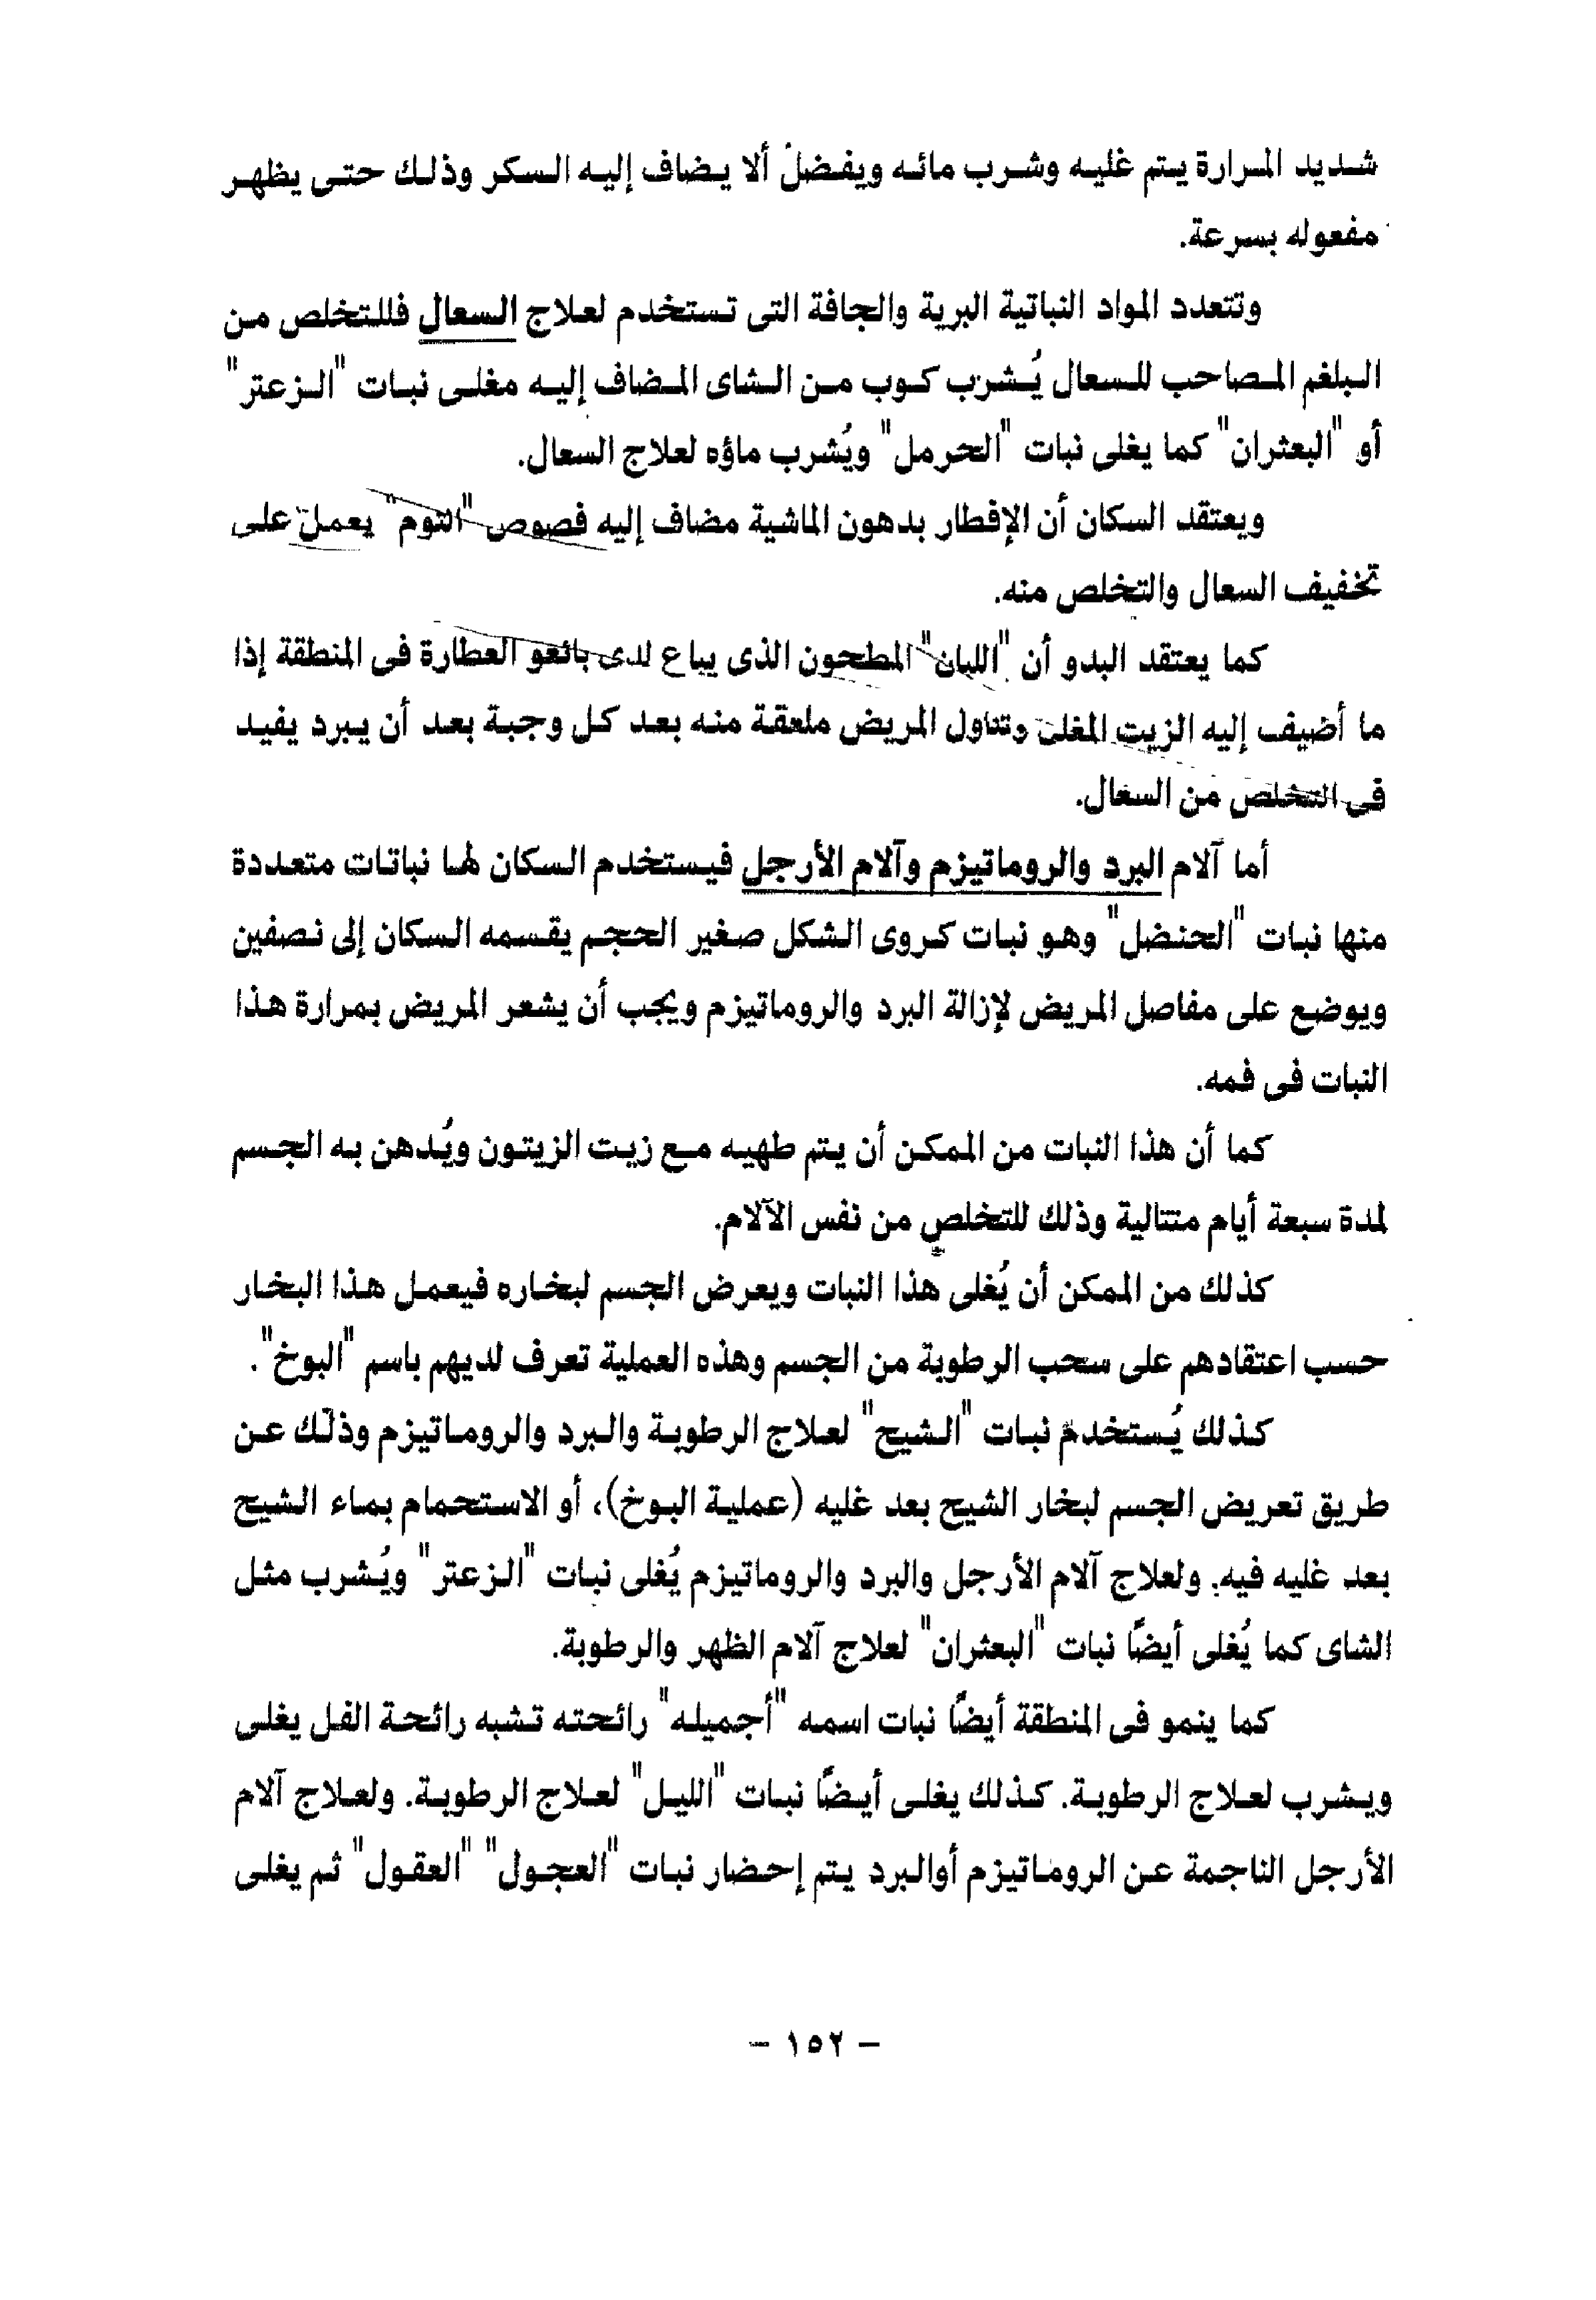 شديد المرارة يتم غليه وشرب مائه ويفضل ألا يضاف إليه السكر وذلك حتى يظهر
مفعوله بسرعة.
وتتعدد المواد النباتية البرية والجافة التى تستخدم لعلاج السعال فللتخلص من
البلغم المصاحب للسعال يُشرب كوب من الشاى المضاف إليه مغلى نبات "الزعتر"
أو "البعثران" كما يغلى نبات "الحرمل" ويُشرب ماؤه لعلاج السعال.
ويعتقد السكان أن الإفطار بدهون الماشية مضاف إليه فصوص "الثوم" يعمل على
تخفيف السعال والتخلص منه.
كما يعتقد البدو أن "اللبان" المطحون الذى يباع لدى بائعو العطارة فى المنطقة إذا
ما أضيف إليه الزيت المغلى وتناول المريض ملعقة منه بعد كل وجبة بعد أن يبرد يفيد
فى التخلص من السعال.
أما آلام البرد والروماتيزم وآلام الأرجل فيستخدم السكان لها نباتات متعددة
منها نبات "الحنضل" وهو نبات كروى الشكل صغير الحجم يقسمه السكان إلى نصفين
ويوضع على مفاصل المريض لإزالة البرد والروماتيزم ويجب أن يشعر المريض بمرارة هذا
النبات فى فمه.
كما أن هذا النبات من الممكن أن يتم طهيه مع زيت الزيتون ويُدهن به الجسم
لمدة سبعة أيام متتالية وذلك للتخلص من نفس الآلام.
كذلك من الممكن أن يُغلى هذا النبات ويعرض الجسم لبخاره فيعمل هذا البخار
حسب اعتقادهم على سحب الرطوبة من الجسم وهذه العملية تعرف لديهم باسم "البوخ".
كذلك يُستخدم نبات "الشيح" لعلاج الرطوبة والبرد والروماتيزم وذلك عن
طريق تعريض الجسم لبخار الشيح بعد غليه (عملية البوخ)، أو الاستحمام بماء الشيح
بعد غليه فيه. ولعلاج آلام الأرجل والبرد والروماتيزم يُغلى نبات "الزعتر" ويُشرب مثل
الشاى كما يُغلى أيضًا نبات "البعثران" لعلاج آلام الظهر والرطوبة.
كما ينمو فى المنطقة أيضًا نبات اسمه "أجميله" رائحته تشبه رائحة الفل يغلى
ويشرب لعلاج الرطوبة. كذلك يغلى أيضًا نبات "الليل" لعلاج الرطوبة. ولعلاج آلام
الأرجل الناجمة عن الروماتيزم أوالبرد يتم إحضار نبات "العجول" "العقول" ثم يغلى
– ١٥٢ –